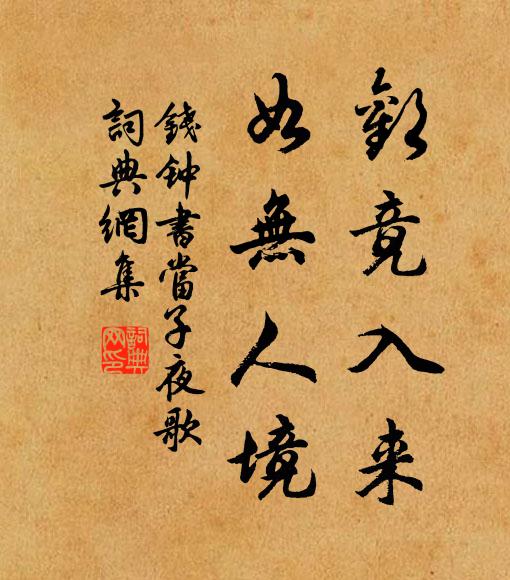 歡竟入来
如無人境
錢钟書當子夜歌
詞典網集
詞典
网印